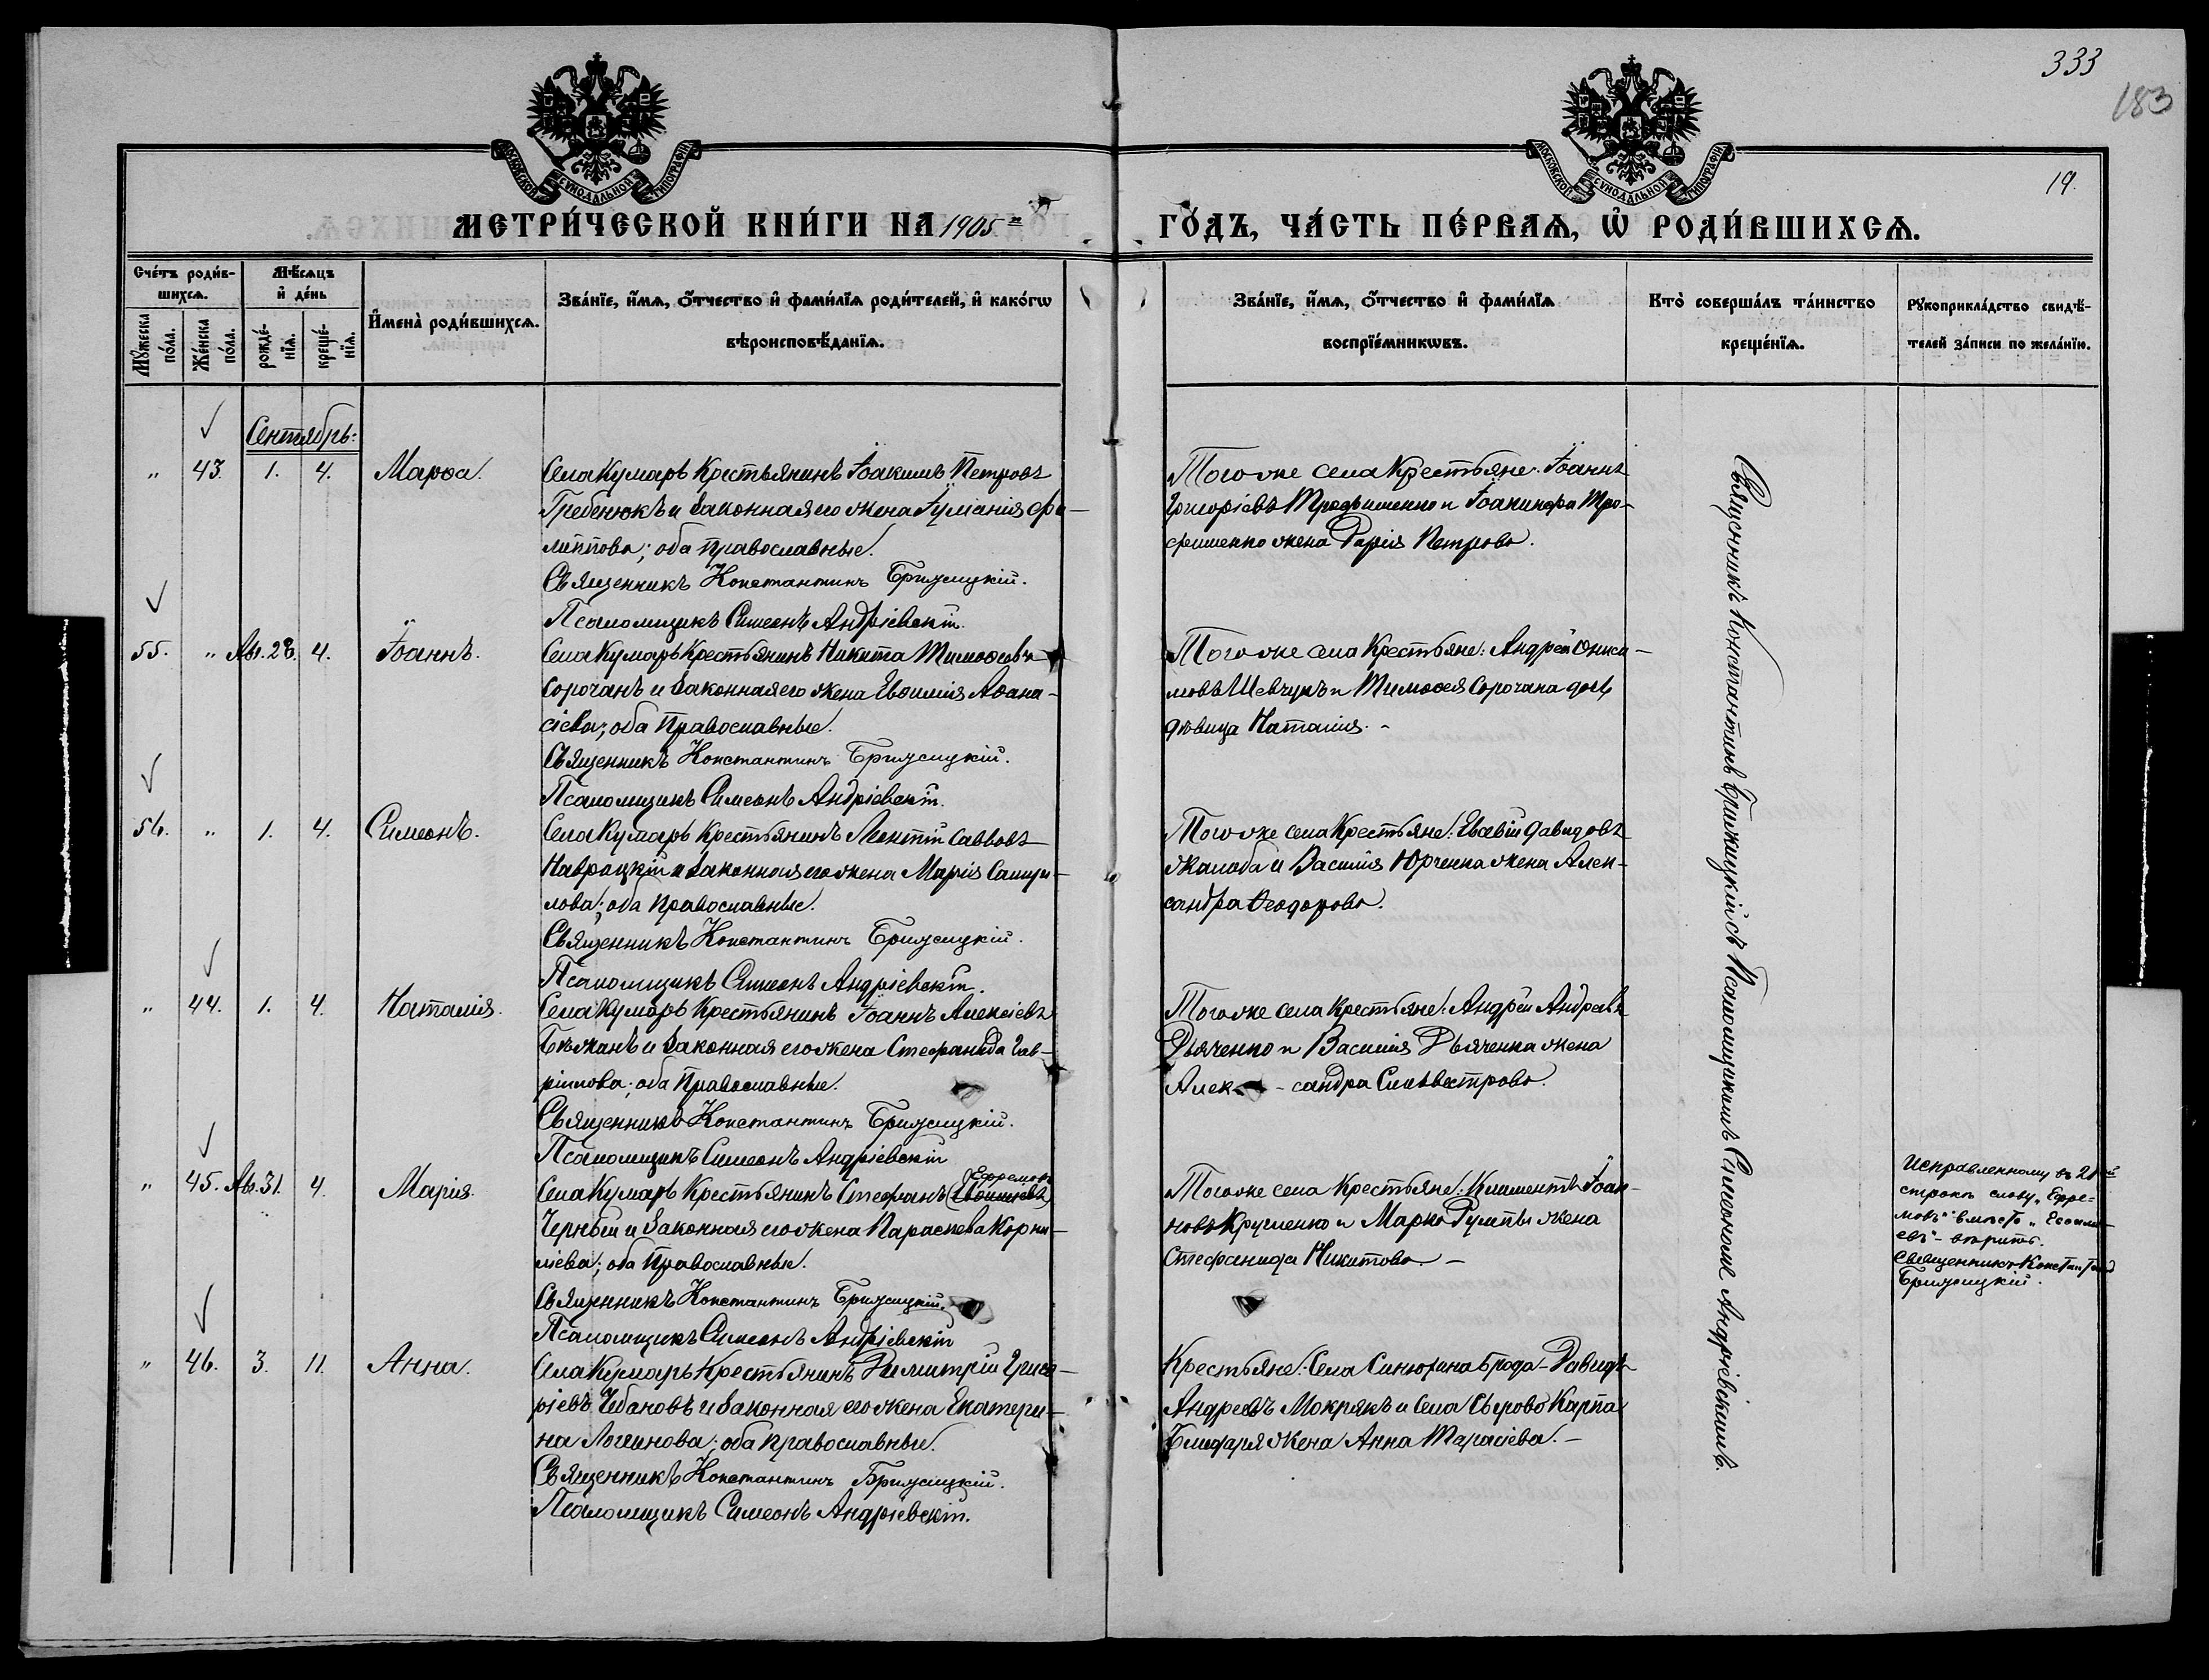 333
183
19.
МОСКОВСКОЙ СѴНОДАЛЬНОЙ ТИПОГРАФІИ
МОСКОВСКОЙ СѴНОДАЛЬНОЙ ТИПОГРАФІИ
МЕТРИ́ЧЕСКОЙ КНИ́ГИ НА 1905 ГО́ДЪ, ЧА́СТЬ ПЕ́РВАѦ, Ѡ҆ РОДИ́ВШИХСѦ.
Сче́тъ роди́в-
шихсѧ.
Мꙋ́жеска по́ла.
Же́нска по́ла.
Мѣ́сѧцъ
и҆ де́нь
рожде́-
нїѧ.
креще́-
нїѧ.
И҆мена̀ роди́вшихсѧ.
Зва́нїе, и҆́мѧ, ѻ҆́тчество и҆ фами́лїѧ роди́телей, и҆ како́гѡ
вѣроисповѣ́данїѧ.
Зва́нїе, и҆́мѧ, ѻ҆́тчество и҆ фами́лїѧ
воспрїе́мникѡвъ.
Кто̀ соверша́лъ та́инство
креще́нїѧ.
Рꙋкоприкла́дство свидѣ́-
телей за́писи по жела́нїю.
Сентябрь:
" 43. 1. 4. Марѳа.
Села Кумаръ Крестьянинъ Іоакимъ Петровъ
Гребенюкъ и законная его жена Іуліанія Фи-
липпова; оба православные.
Священникъ Константинъ Брижицкій.
Псаломщикъ Симеонъ Андріевскій.
Того же села Крестьяне: Іоаннъ
Григоріевъ Трофименко и Іоакинфа Тро-
фименко жена Дарія Петрова.
55. " Авг. 28. 4. Іоаннъ.
Села Кумаръ Крестьянинъ Никита Тимоѳеевъ
Сорочанъ и законная его жена Евѳимія Аѳана-
сіева; оба Православные.
Священникъ Константинъ Брижицкій.
Псаломщикъ Симеонъ Андріевскій.
Того же села Крестьяне: АндрейОниси-
мовъ Шевчукъ и Тимоѳея Сорочана дочь
дѣвица Наталія. -
56. " 1. 4. Симеонъ.
Села Кумаръ Крестьянинъ Леонтій Саввовъ
Навроцкій и законная его жена Марія Самуи-
лова; оба Православные.
Священникъ Константинъ Брижицкій.
Псаломщикъ Симеонъ Андріевскій.
Того же села Крестьяне: Евсевій Давидовъ
Жалоба и Василія Юрченка жена Алек-
сандра Ѳеодорова.
" 44. 1. 4. Наталія.
Села Кумаръ Крестьянинъ Іоаннъ Алексіевъ
Бѣжанъ и законная его жена Стефанида Гав-
ріилова; оба Православные.
Священникъ Константинъ Брижицкій.
Псаломщикъ Симеонъ Андріевскій
Того же села Крестьяне: Андрей Андреевъ
Дьяченко и Василія Дьяченка жена
Алек- - сандра Сильвестрова.
" 45. Авг. 31. 4. Марія.
Ефремовъ
Села Кумаръ Крестьянинъ Стефанъ (Евѳиміевъ)
Черный и законная его жена Параскева Корни-
ліева; оба Православные.
Священникъ Константинъ Брижицкій.
Псаломщикъ Симеонъ Андріевскій
Того же села Крестьяне: Климентъ Іоан-
новъ Кручленко и Марка жена
Стефанида Никитова. -
Исправленному въ 21й
строкѣ слову "Ефре-
мовъ" вмѣсто "Евѳимі-
евъ" - вѣрить.
Священникъ Константинъ
Брижицкій.
" 46. 3. 11. Анна.
Села Кумаръ Крестьянинъ Димитрій Григо-
ріевъ Чебановъ и законная его жена Екатери-
на Логинова; оба православные.
Священникъ Константинъ Брижицкій.
Псаломщикъ Симеонъ Андріевскій.
Крестьяне: Села Синюхина Брода - Давидъ
Андреевъ Мокрякъ и села Сырово Карпа
жена Анна Тарасіева. -
Священникъ Константинъ Брижицкій съ Псаломщикомъ Симеономъ Андріевскимъ.